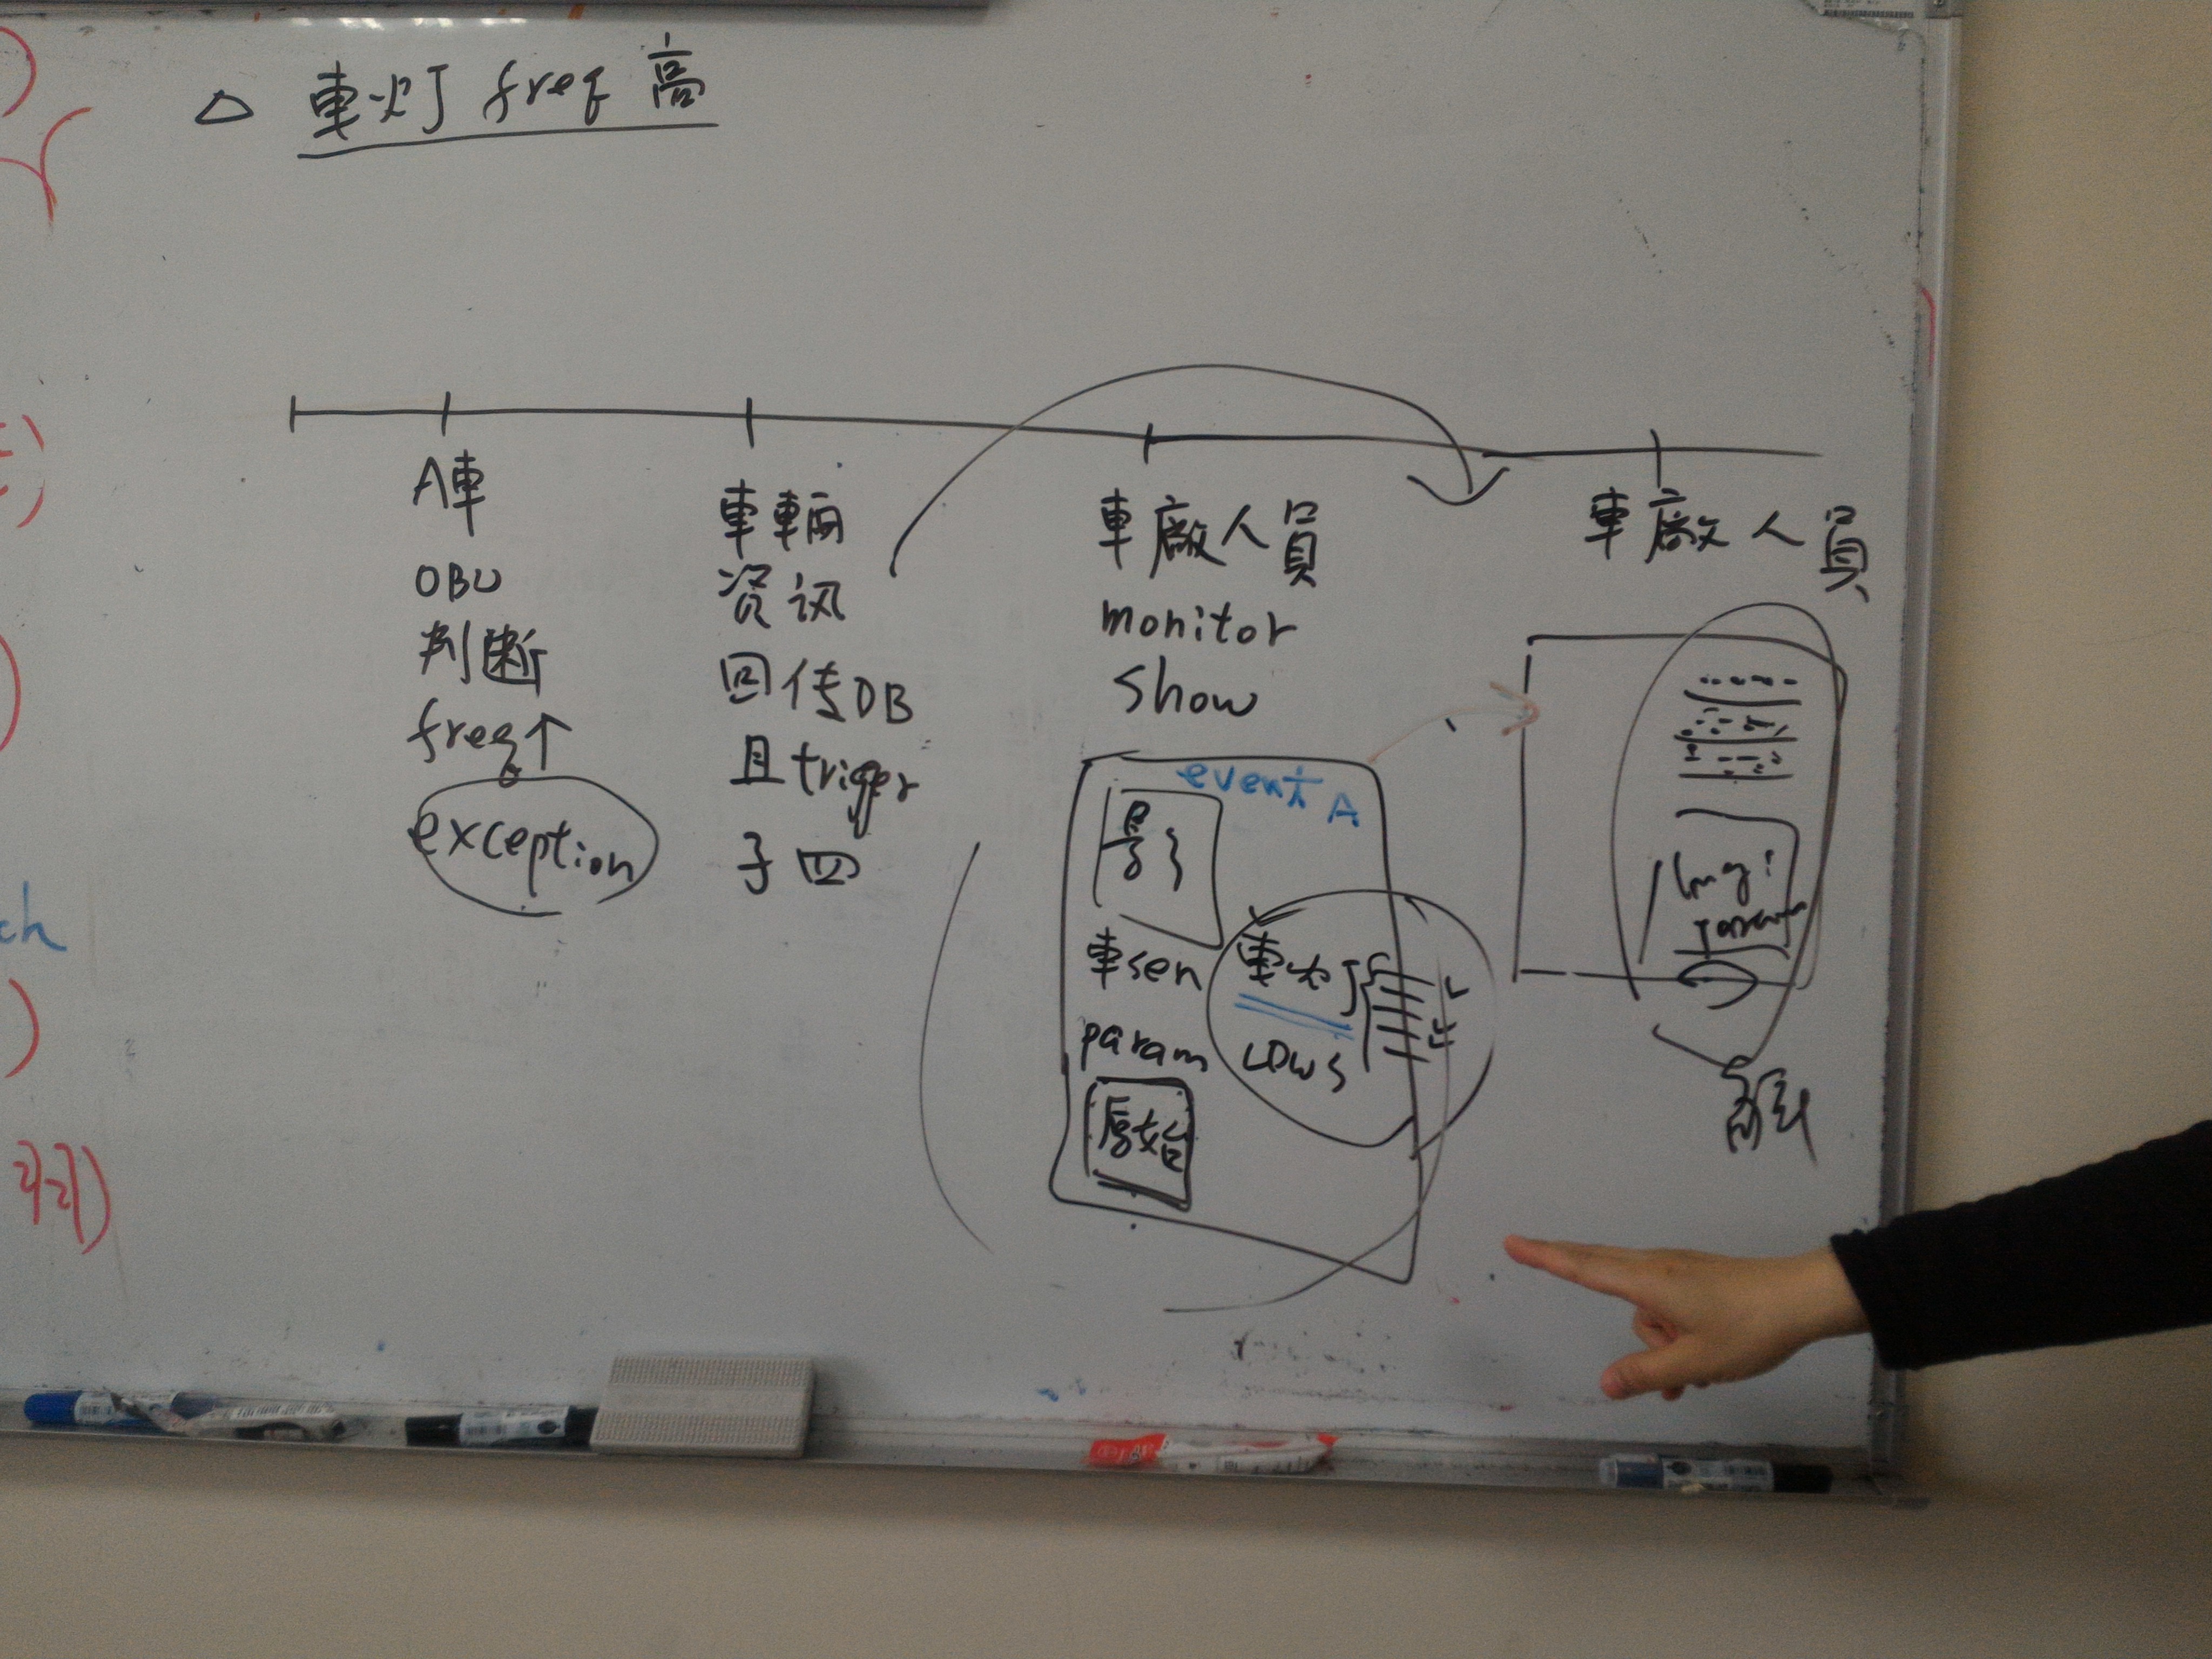 △ 車灯 freq 高
A車
OBU
判断
freq↑
exception
車輛
资讯
回传DB
且trigger
子四
車廠人員
monitor
show
event A
影
車sen
param
原始
車灯
LDWS
車廠人員
Img:
ch